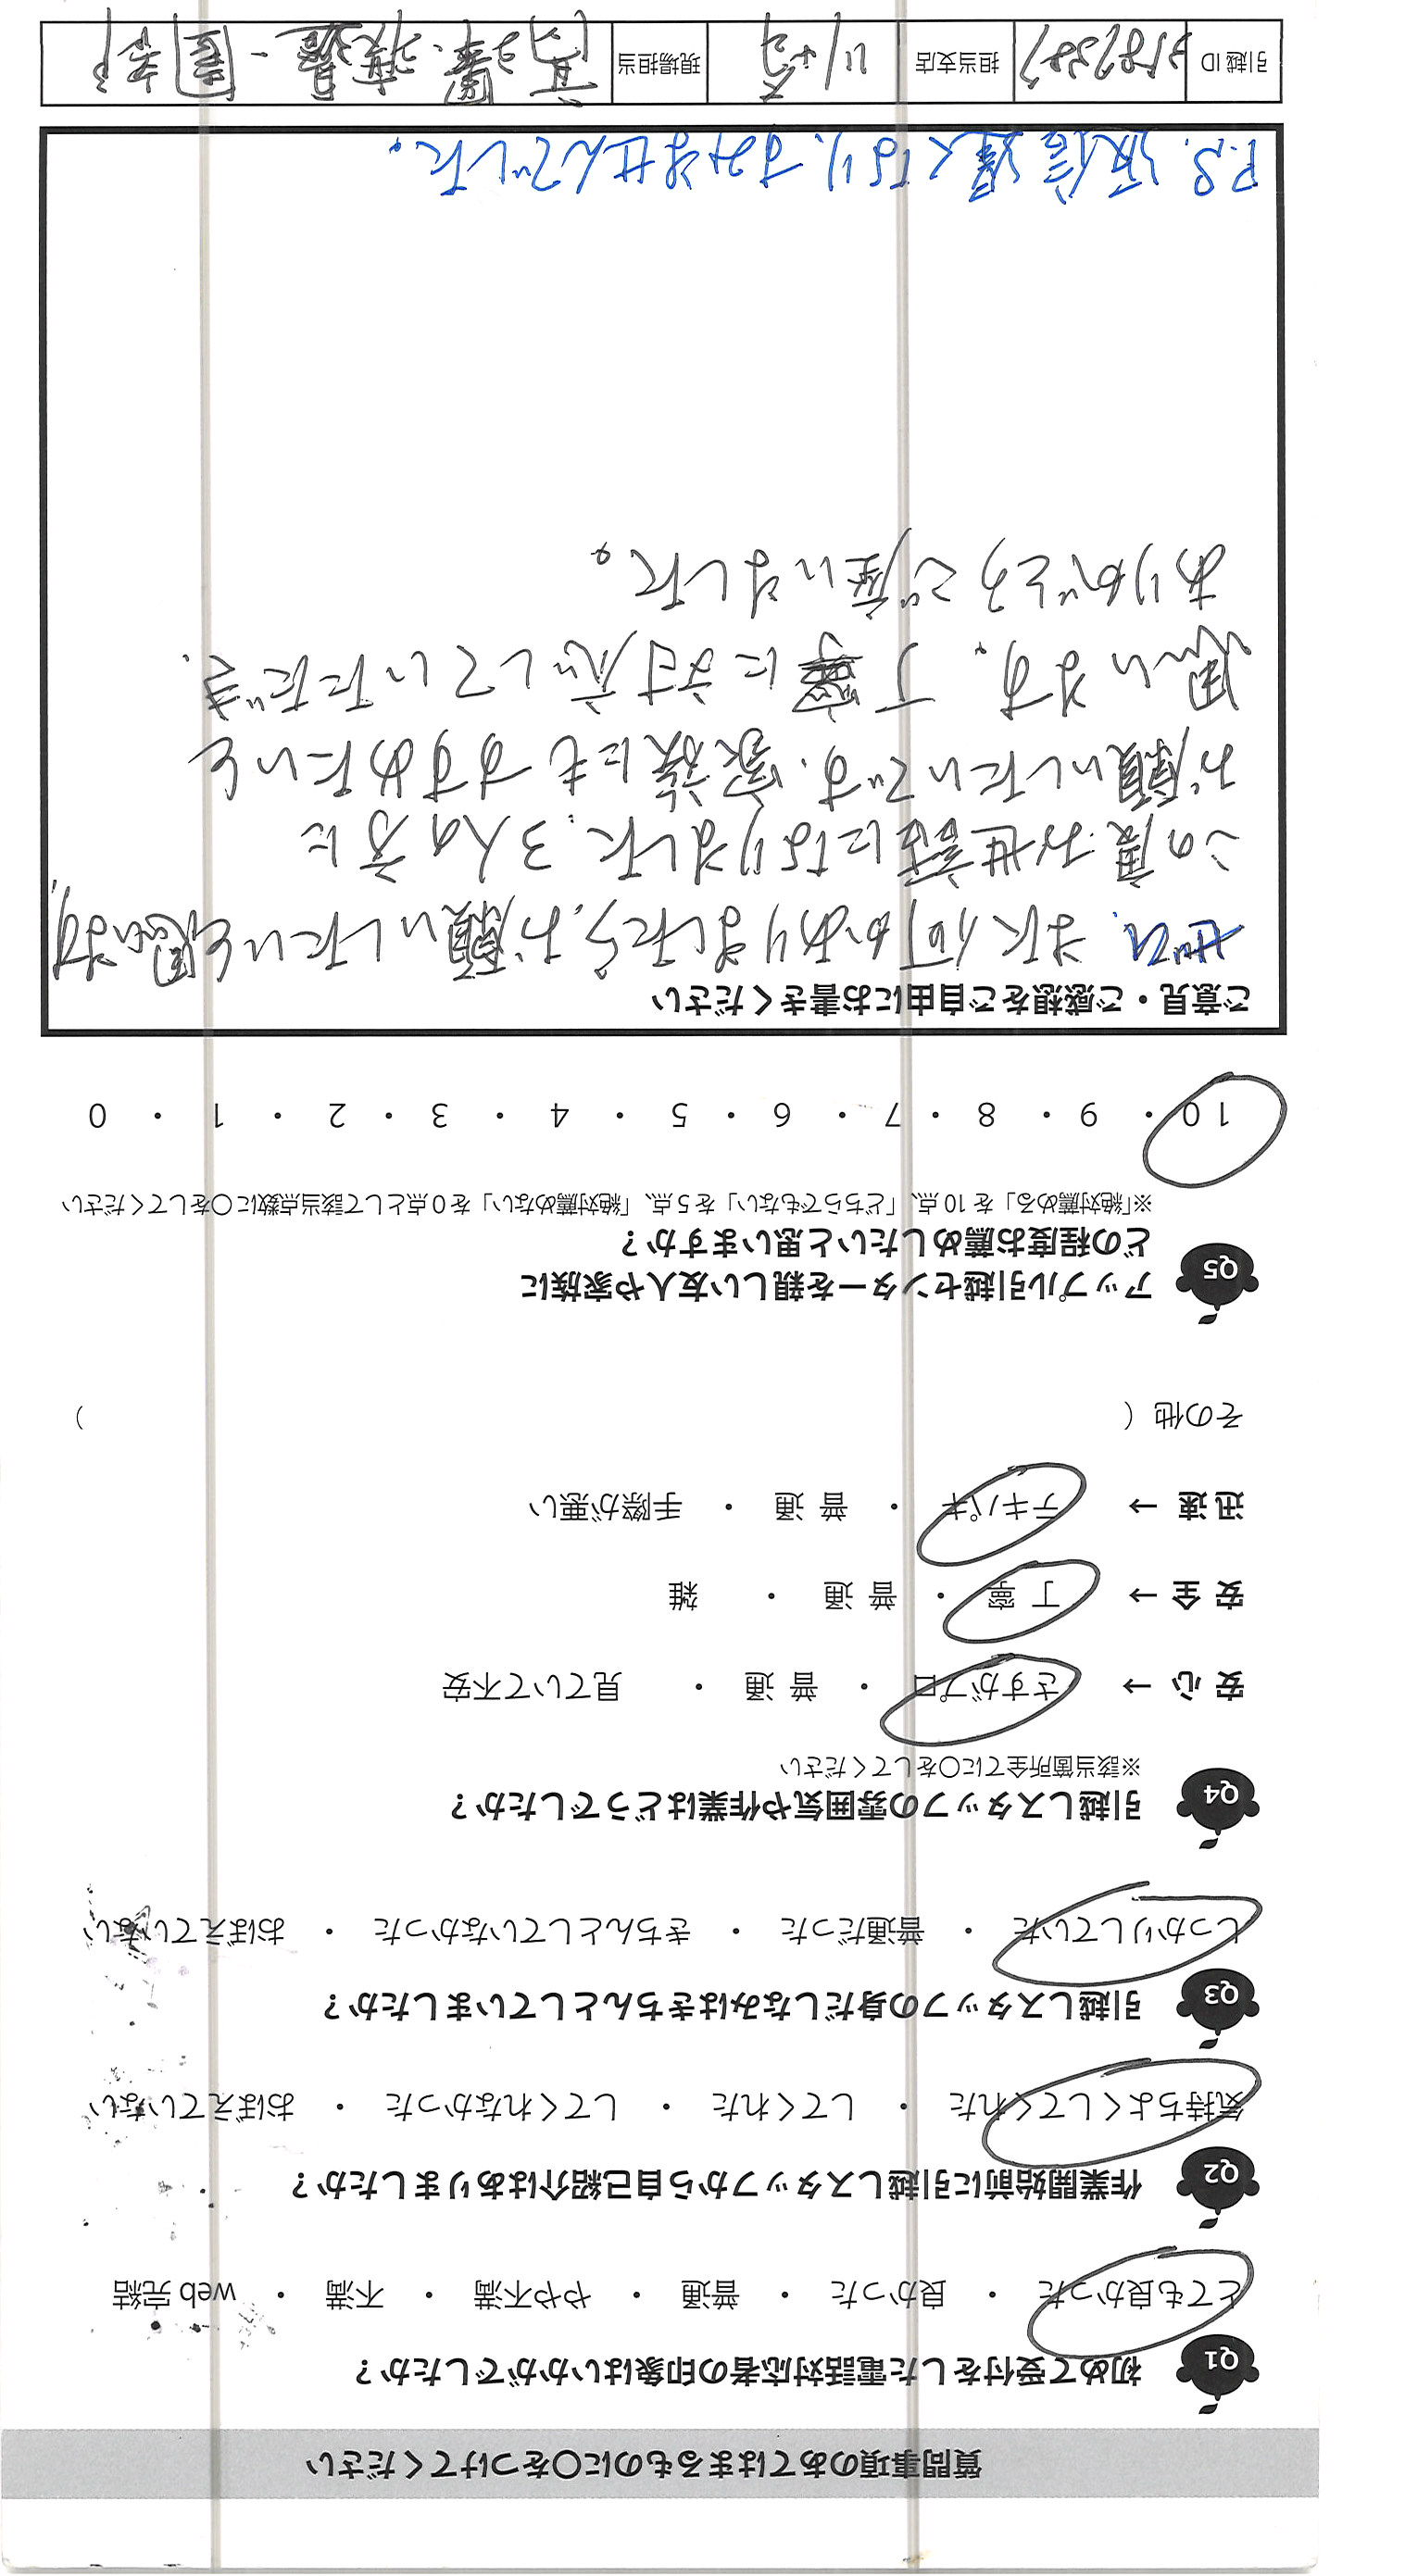 質問事項のあてはまるものに○をつけてください
Q1 初めて受付をした電話対応者の印象はいかがでしたか？
とても良かった ・ 良かった ・ 普通 ・ やや不満 ・ 不満 ・ web 完結
Q2 作業開始前に引越しスタッフから自己紹介はありましたか？
気持ちよくしてくれた ・ してくれた ・ してくれなかった ・ おぼえていない
Q3 引越しスタッフの身だしなみはきちんとしていましたか？
しっかりしていた ・ 普通だった ・ きちんとしていなかった ・ おぼえていない
Q4 引越しスタッフの雰囲気や作業はどうでしたか？
※該当箇所全てに○をしてください
安 心 → さすがプロ ・ 普 通 ・ 見ていて不安
安 全 → 丁 寧 ・ 普 通 ・ 雑
迅 速 → テキパキ ・ 普 通 ・ 手際が悪い
その他（ ）
Q5 アップル引越センターを親しい友人や家族に
どの程度お薦めしたいと思いますか？
※「絶対薦める」を 10 点、「どちらでもない」を 5 点、「絶対薦めない」を 0 点として該当点数に○をしてください
10 ・ 9 ・ 8 ・ 7 ・ 6 ・ 5 ・ 4 ・ 3 ・ 2 ・ 1 ・ 0
ご意見・ご感想をご自由にお書きください
ぜひ、また何かありましたら、お願いしたいと思います。
この度お世話になりました、3人の方に
お願いしたいです。家族にもすすめたいと
思います。丁寧に対応していただき、
ありがとうご座いました。
P.S. 返信遅くなり、すみませんでした。
引越 ID 担当支店 現場担当